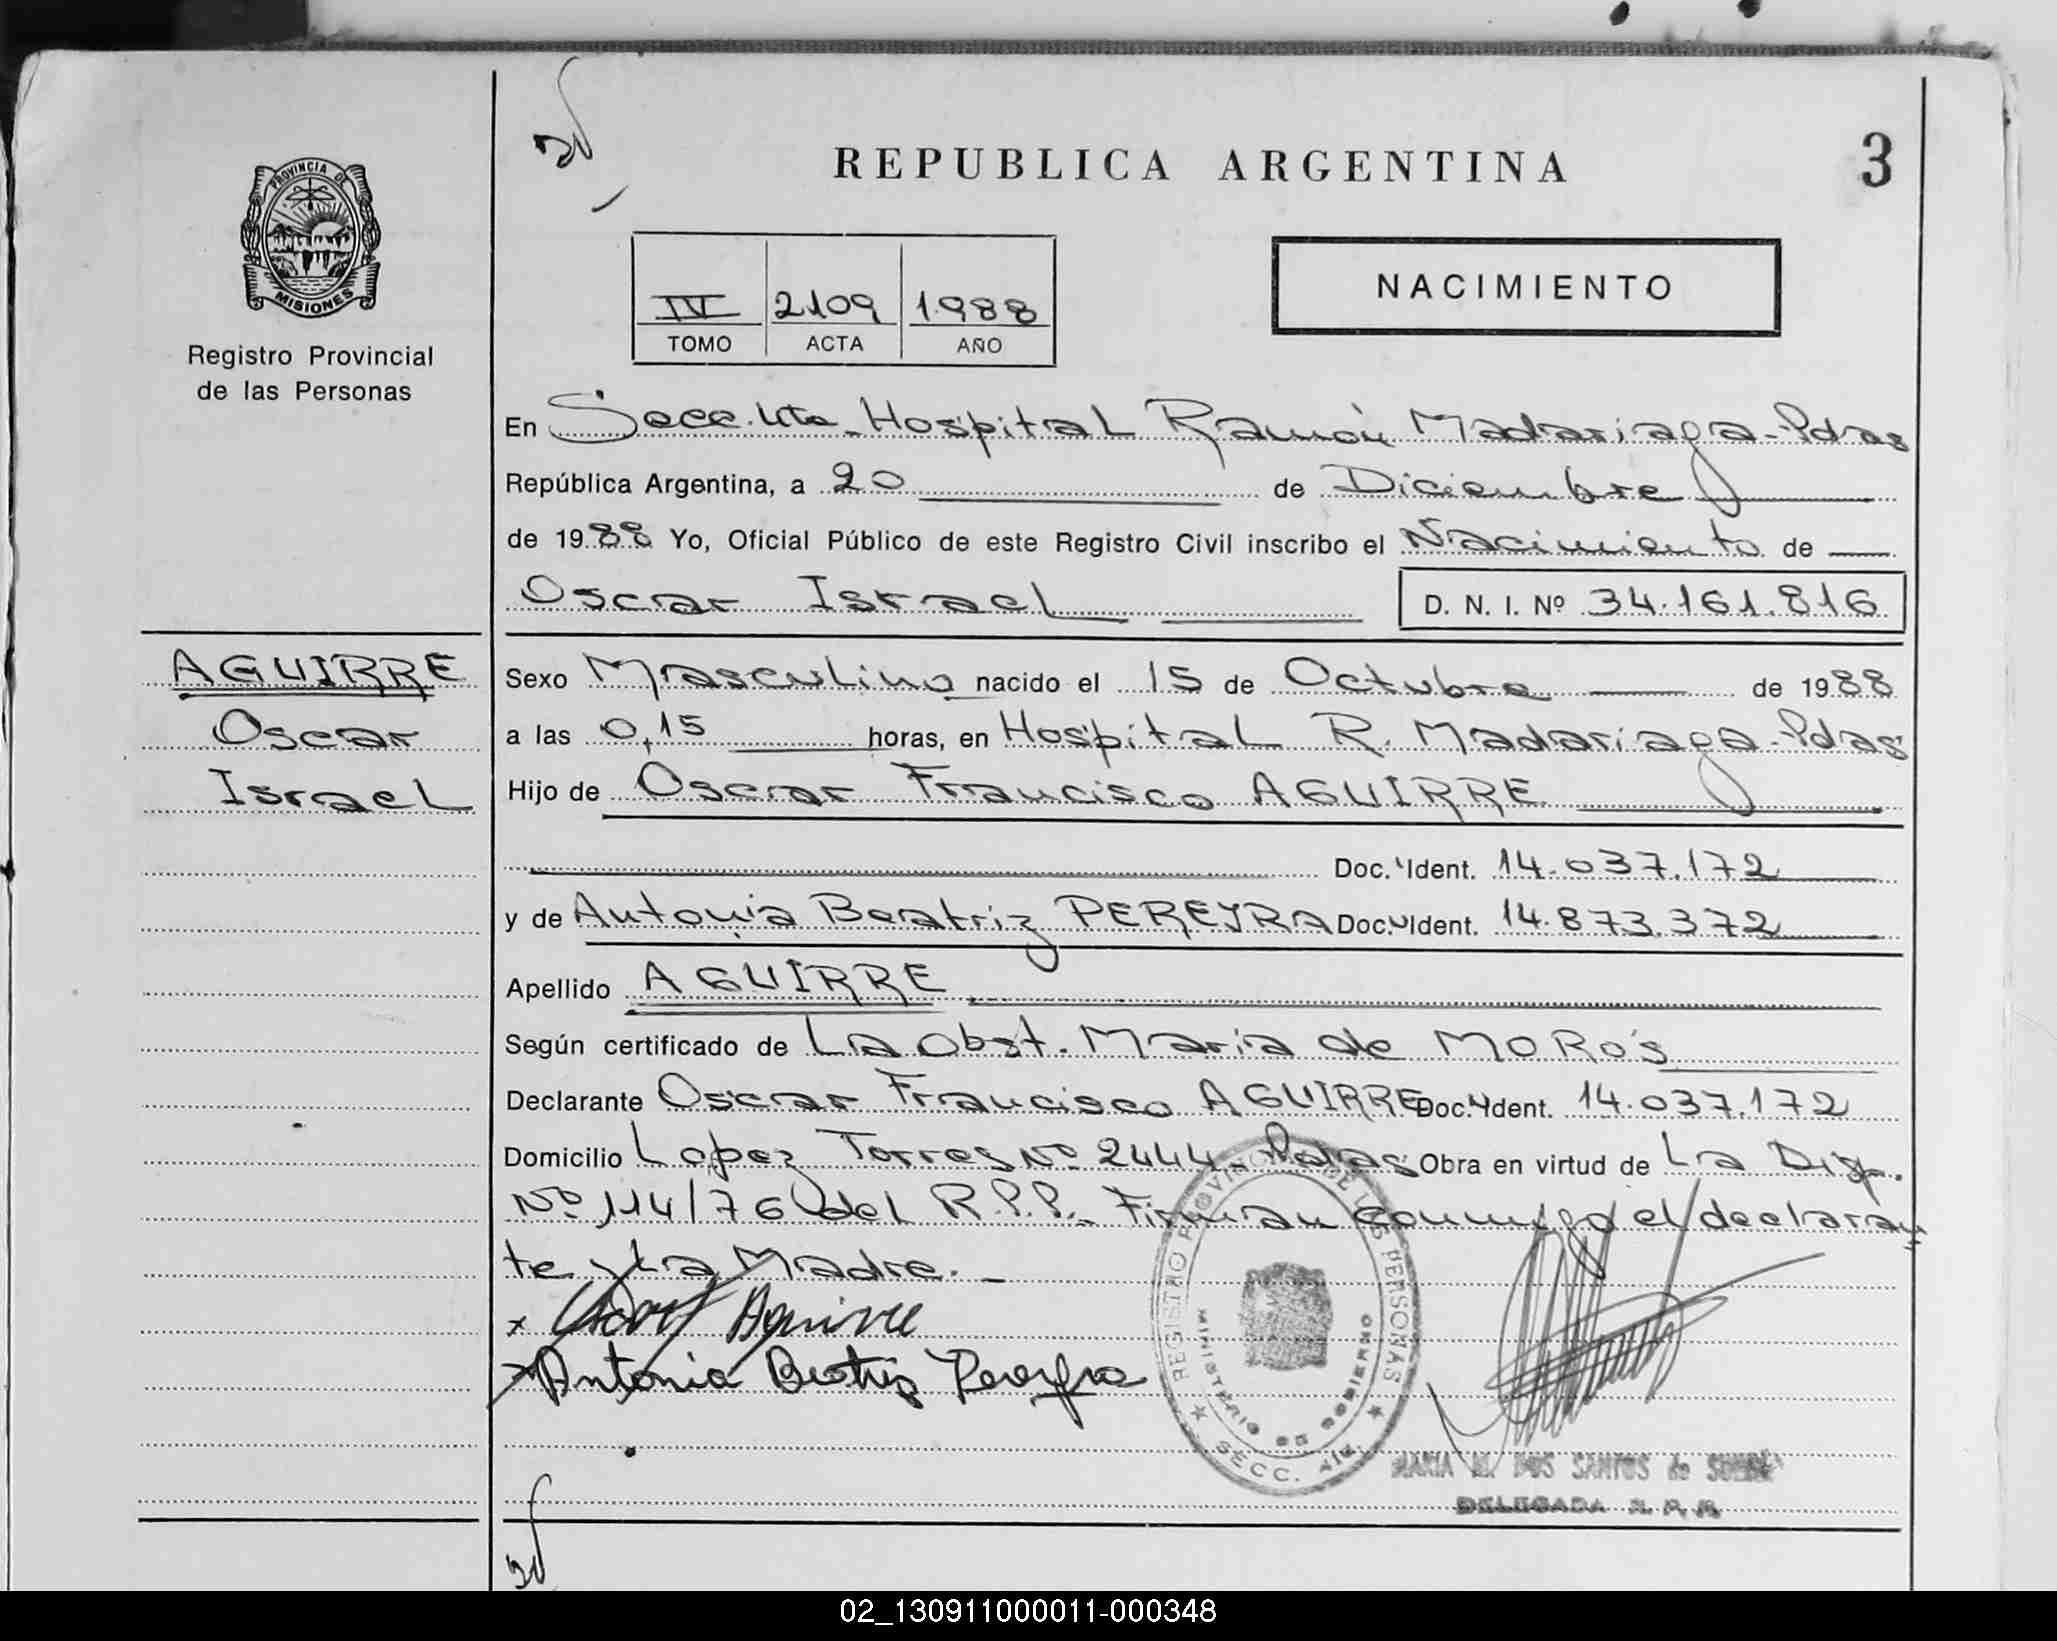 REPUBLICA ARGENTINA
3
PROVINCIA DE
MISIONES
Registro Provincial
de las Personas
IV 2109 1.988
TOMO ACTA AÑO
NACIMIENTO
En Secc. 4ta. Hospital Ramón Madariaga - Pdas
República Argentina, a 20 de Diciembre
de 1988 Yo, Oficial Público de este Registro Civil inscribo el Nacimiento de
Oscar Israel D. N. I. Nº 34.161.816
AGUIRRE
Oscar
Israel
Sexo Masculino nacido el 15 de Octubre de 1988
a las 0,15 horas, en Hospital R. Madariaga - Pdas
Hijo de Oscar Francisco AGUIRRE
Doc. Ident. 14.037.172
y de Antonia Beatriz PEREYRA Doc. Ident. 14.873.372
Apellido AGUIRRE
Según certificado de La Obst. María de MORo's
Declarante Oscar Francisco AGUIRRE Doc. Ident. 14.037.172
Domicilio Lopez Torres Nº 2444 - Pdas Obra en virtud de La Disp.
Nº 114/76 del R.P.P. - Firman conmigo el declaran
te y la Madre. -
x Aguirre
x Antonia Beatriz Pereyra
REGISTRO PROVINCIAL DE LAS PERSONAS
MINISTERIO DE GOBIERNO
SECC. 4ta
MARIA M. DOS SANTOS de
DELEGADA R. P. P.
02_130911000011-000348